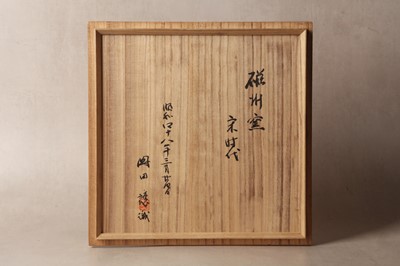 磁州窯
宋時代
昭和四十八年三月廿四日
岡田
誠